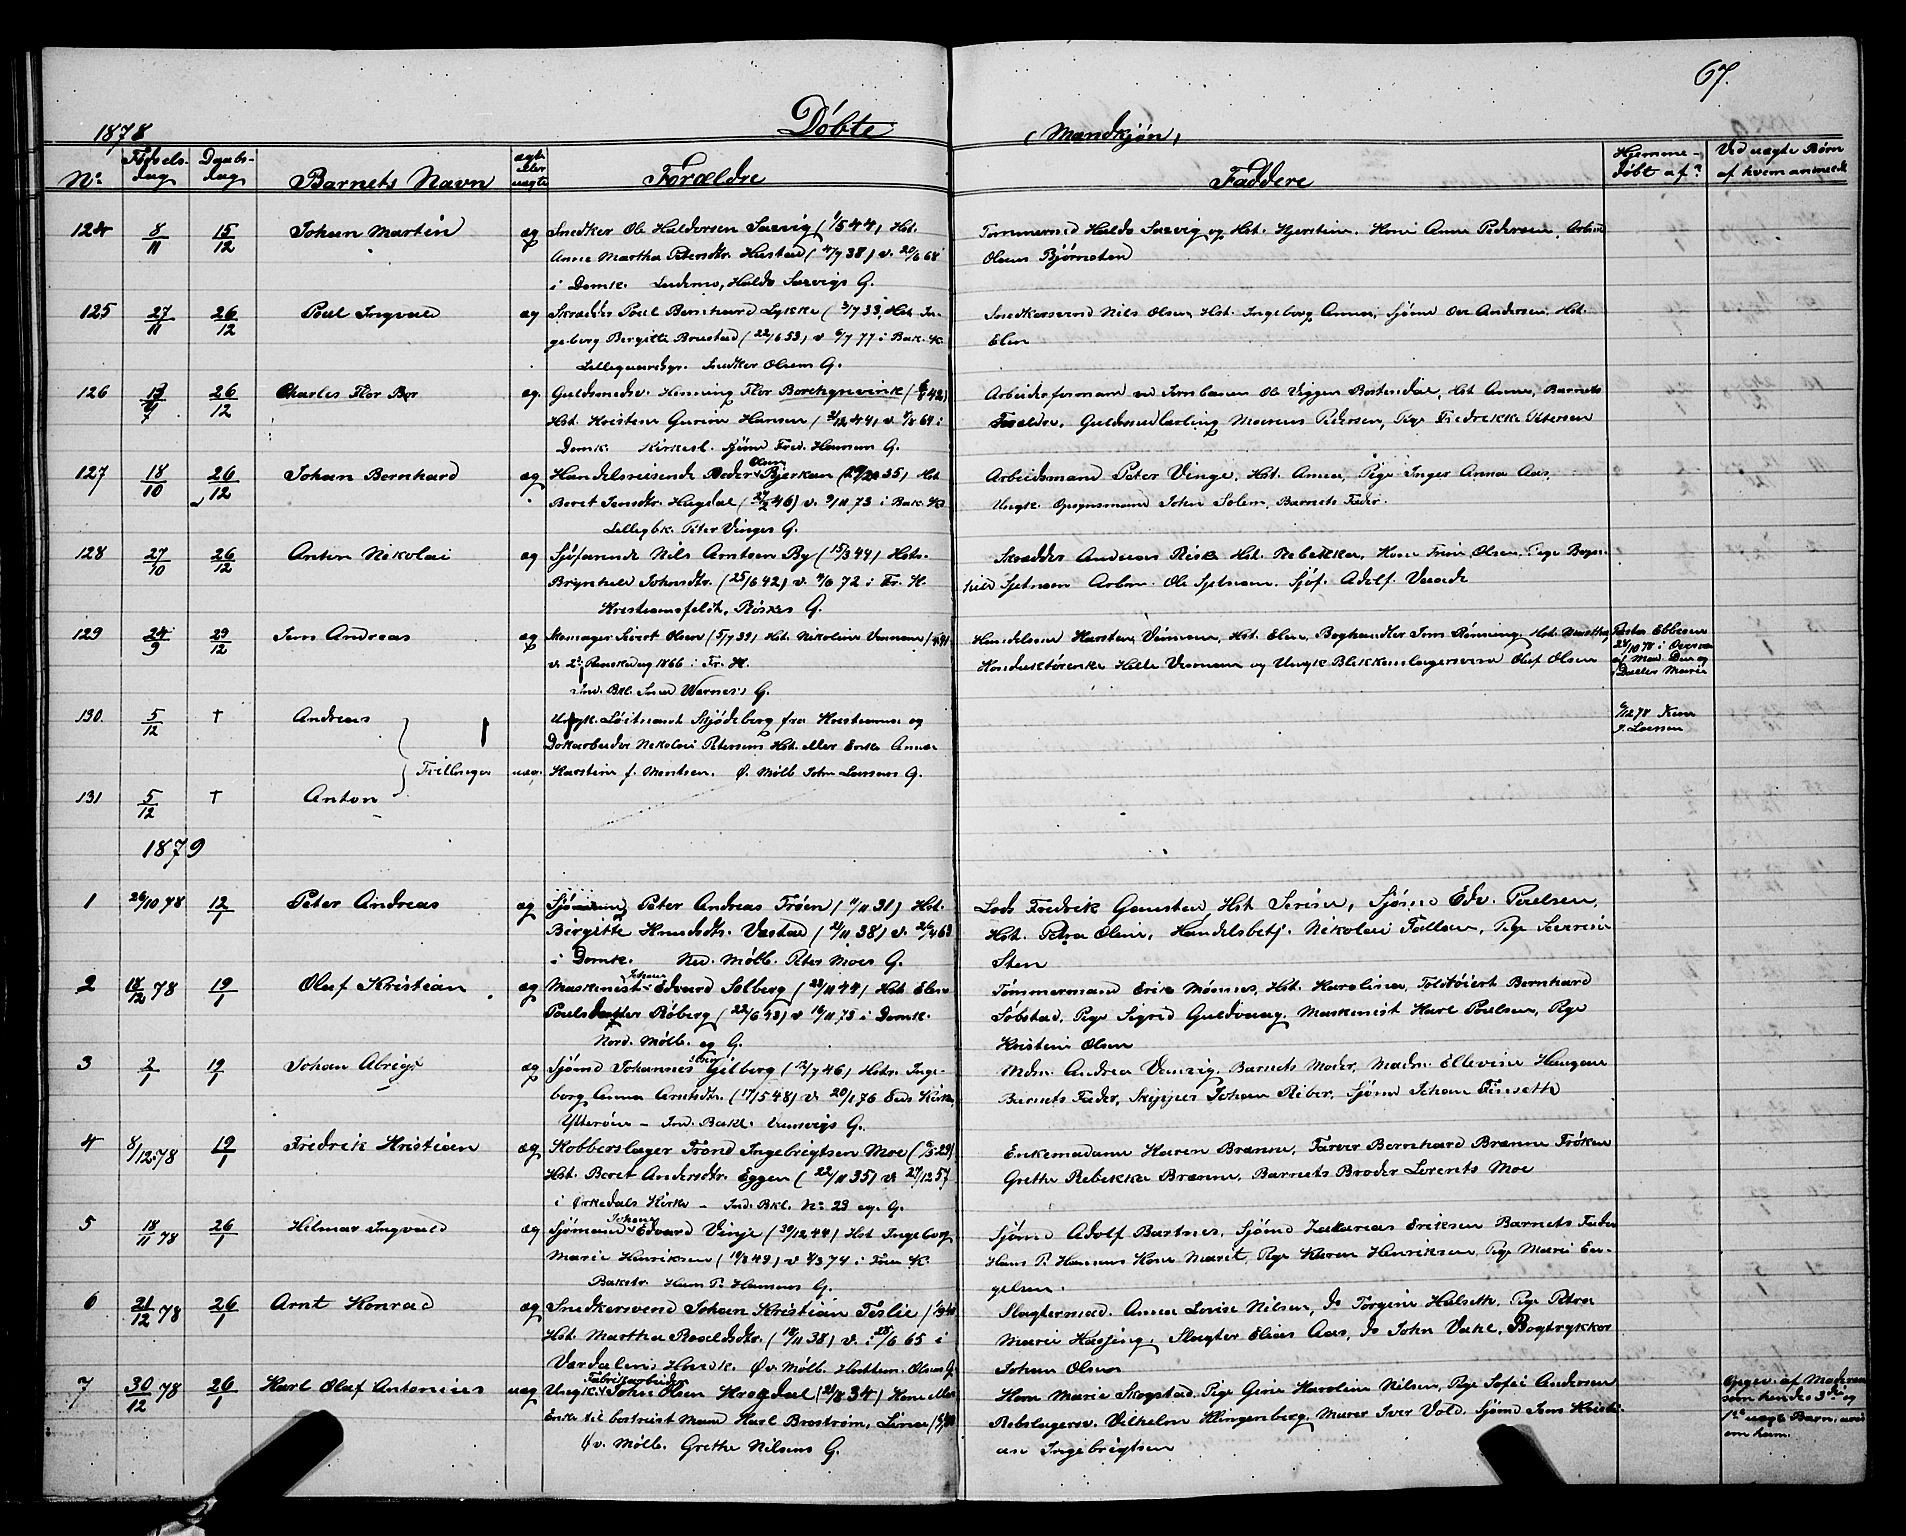 67.
1878
Døbte
(Mandkjøn)
No. Fødselsdag Daabsdag Barnets Navn ægte eller uægte Forældre Faddere Hjemmedøbt af? Ved uægte Børn af hvem anmeldt
124 8/11 15/12 Johan Martin æg Snedker Ole Haldersen Saxvig (1/5 44) Hst.
Anne Martha Petersdtr. Hustad (4/9 38) v. 20/6 68
i Domk. Ladem, Haldo Saxvigs G.
Tømmermd Haldo Saxvig og Hst. Kjerstine, Kone Anne Pedersen, Arbm
Olaus Bjørneten
125 27/11 26/12 Poul Ingvald æg Skræder Poul Bernhard Lykke (3/7 33) Hst. In-
geborg Birgitte Brustad (22/6 53) v 6/7 77 i Bak. K.
Lillegaardsgr. Snedker Olsens G.
Snedkersvend Nils Olsen, Hst. Ingeborg Anna, Sjømd Ole Andersen, Hst.
Elen
126 26/12 Charles Flor Bor æg. Guldsmedsv. Henning Flor Borchgrevink
Hst. Kristen Gurine Hansen
Domk. Kirkest. Sjømd Fred. Hansens G.
Arbeidsformand ved Jernbanen Ole Viggen Rostendal, Hst Anne, Barnets
Forældre, Guldsmedlærling Mourens Pedersen, Pige Fredrikke Pettersen
127 18/10 26/12 Johan Bernhard æg Handelsreisende Peder Olsen Bjerkan Hst
Beret Jensdtr. Hagdal (27/2 46) v. 9/11 73 i Bak. K
Lillegbk. Peter Vinges G.
Arbeidsmand Peter Vinge, Hst. Anna, Pige Inger Anna Aas,
Ungk. Opsynsmand John Solem, Barnets Fader.
128 27/10 26/12 Anton Nikolai æg Sjøfarende Nils Arntsen By (15/3 44) Hst.
Brynhild Johnsdtr. (25/6 42) v. 72 i Fr. K.
Kristiansfeldt, Røskes G.
Skrædder Andreas Røsk Hst. Rebekka, Kone Trine Olsen, Pige Bergi-
Sjetnan Arbm. Ole Sjetnan, Sjøf. Adolf
129 24/9 29/12 Jens Andreas æg Skomager Sivert Olsen (5/7 39) Hst. Nikoline
v. 2. Paaskedag 1866 i Fr. K.
Ind. Bkl. Sned Werners G.
Handelsm Karsten, Hst. Elen, Boghandler Jens Rønning, Hst. Martha,
Konduktørenke Helle og Ungk Blikkenslagersvend Olaf Olsen
Pastor Ebbesen
28/10 78 i
af Mad. Due og
Datter Marie
130. 5/12 † Andreas
Ungk. Løitnant Skjødeberg fra Kristiania og
Dokarbeider Nikolai Petersens Hst. eller Enke Anna
Tvillinger uæg. Karstine f. Mentsen. Ø. Mølb. John Larsens G.
131 5/12 † Anton
1879
1 26/10 78 12/1 Peter Andreas æg Sjømand Peter Andreas Trøen Hst.
Birgitte Knudsdtr. Vastad (21/11 38) v. 26/4 63
i Domk. Ned. Mølb. Peter Moes G.
Lods Fredrik Gansten, Hst Serine, Sjømd Edv. Poulsen,
Hst. Petra Oline, Handelsbetj. Nikolai Fallan, Pige Severine
Sten
2 18/12 78 19/1 Olaf Kristian æg Maskinist Johan Edvard Solberg (23/11 44) Hst Elen
Poulsdatter Røberg (22/6 43) v 16/11 73 i Domk.
Nord. Mølb. eg G.
Tømmermand Erik Mønnes, Hst. Karolina, Toldtøiert Bernhard
Søbstad, Pige Sigrid Guldvaag, Maskinist Karl Poulsen, Pige
Kristine Olsen
3 2/1 19/1 Johan æg Sjømd Johannes Gilberg (12/7 46) Hst. Inge-
borg Anna Arntsdtr. (17/5 48) v. 20/1 76 Eids Kirke,
Ytterøen – Ind. Bakl. G.
Mdm. Andrea Venvig, Barnets Moder, Madm. Ellevine Haugan
Barnets Fader, Skipper Johan Riber, Sjømd Johan Finseth
4 8/12 78 19/1 Fredrik Kristian æg Kobberslager Trond Ingebrigtsen Moe
Hst. Beret Andersdtr. Eggen (22/11 35) v. 27/12 57
i Orkedals Kirke – Ind. Bkl. No 23 eg. G.
Enkemadame Karen Brænne, Farver Bernhard Brænne Frøken
Grethe Rebekka Brænne, Barnets Broder Lorents Moe
5 18/11 78 26/1 Hilmar Ingvald æg Sjømand Johan Edvard Vinje (30/12 44) Hst Ingeborg
Marie Henriksen v 74 i Frue K.
Bakstr. Hans P. Hansens G.
Sjømd Adolf Bartnes, Sjømd Zakarias Eriksen Barnets Fader
Hans P. Hansens Kone Maret, Pige Karen Henriksen, Pige Marie En-
gelsen.
6 21/12 78 26/1 Arnt Konrad æg Snedkersvend Johan Kristian Teslie
Hst. Martha Roaldsdtr. (18/11 38) v. 25/6 65 i
Værdalens Hovdk. Øv Mølb. Olsens G.
Slagtermad. Anna Lovise Nilsen, do Torgine Halseth, Pige Petra
Marie Hasjing, Slagter Elias Aas, do John Vahl, Bogtrykker
Johan Olsen
7 30/12 78 26/1 Karl Olaf Antonius uæg Ungk. Fabrikarbeider John Olsen Hoegdal Kone eller
Enke til bortreist Mand Karl Brostrøm, Lina
Øv. Mølb. Grethe Nilsens G.
Kone Marie Skogstad, Pige Gine Karoline Nilsen, Pige Sofie Andersen
Rebslagersv. Vilhelm Klingenberg, Murer Iver Vold, Sjømd Jens Kristi-
an Ingebrigtsen
Opgiv. af Moderen
som hendes 3die og
1ste uægte Barn, med
om ham.